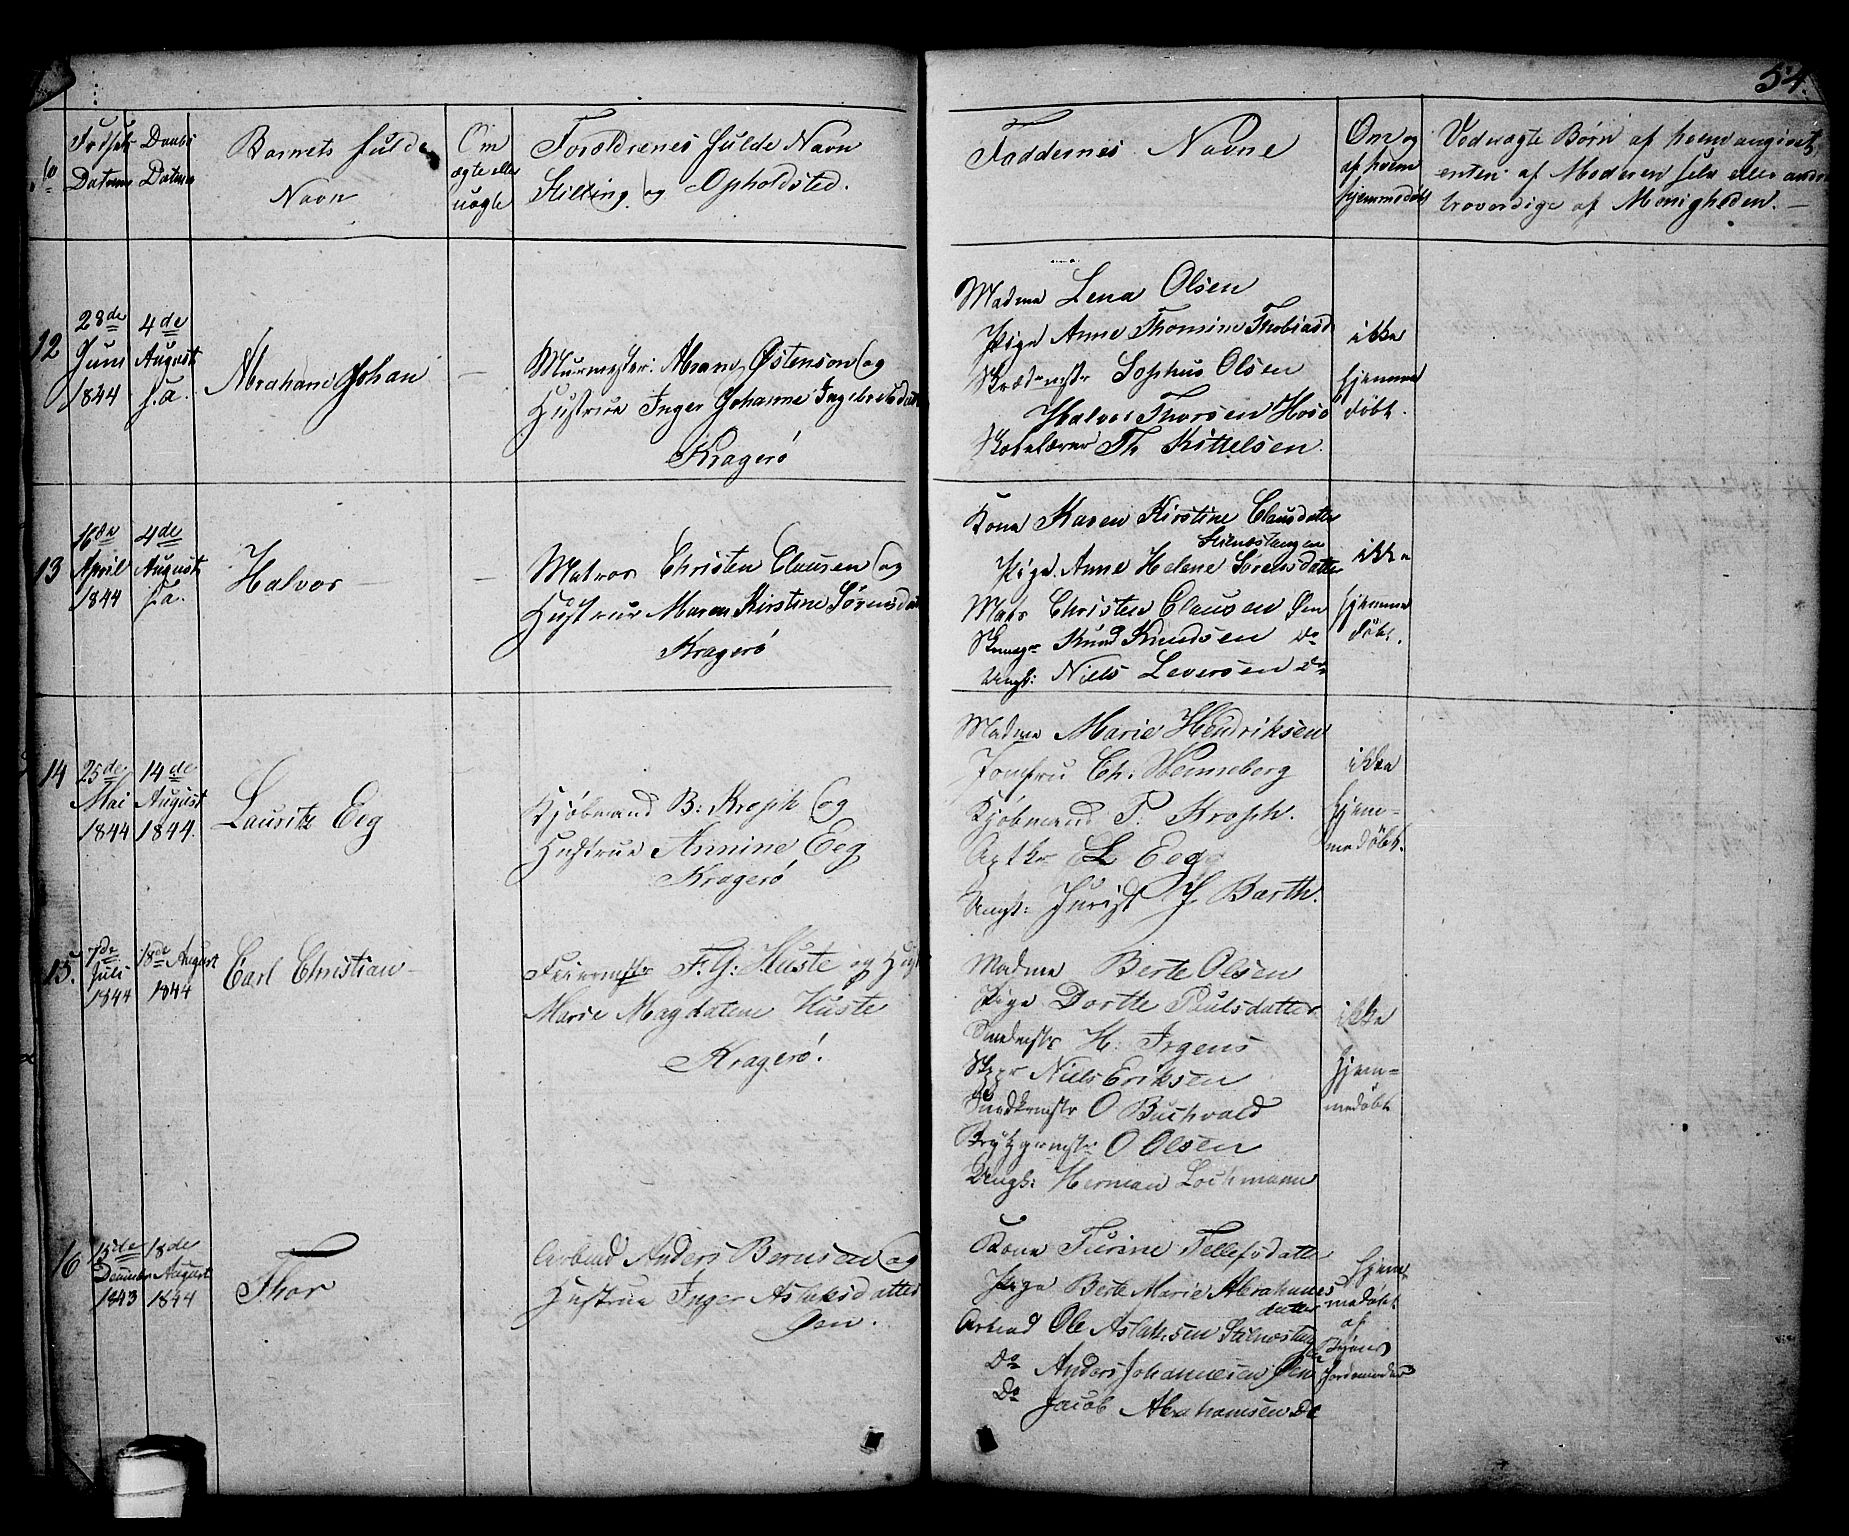 54.
No
Fødsels Daabs
Datum Datum
Barnets fulde
Navn
Om
ægte eller
uægte
Forældrenes fulde Navn
Stilling og Opholdsted.
Faddernes Navne
Om og
af hvem
hjemmedøbt
Ved uægte Børn af hvem angivet,
enten af Moderen selv eller andre
troværdige af Menigheden. —
12
28de
Juni
1844
4de
August
s.a.
Abraham Johan
—
Murmester: Abram Østenson og
Hustrue Inger Johanne Ingebretsdatter
Kragerö
Madme Lena Olsen
Pige Anne Thomine Thobiasd
Skrædermstr Sophus Olsen
Halvor Thorsen
Skolelærer Th Kittelsen.
ikke
hjemme
døbt.
13
16de
April
1844
4de
August
s.a.
Halvor —
—
Matros Christen Clausen og
Hustrue Maren Kirstine Sörensdatter
Kragerö
Kone Karen Kirstine Clausdatter
Stilnestangen
Pige Anne Helene Sorensdatter
Mats Christen Clausen Øen
Knud Knudsen do
Ungk: Niels Leversen do
ikke
hjemme
døbt.
14
25de
Mai
1844
14de
August
1844.
Lauritz Eeg
Kjøbmand B: Kroph og
Hustrue Annine Eeg
Kragerö
Madme Marie Hendriksen
Jomfru Ch: Henneberg
Kjøbmand P. Kroph.
Aptkr L Eeg
Ungk: Jurist J Barth.
ikke
hjem=
medöbt.
15.
7de
Juli
1844
18de August
1844
Carl Christian —
Feiermstr F. G: Huste og Hust
Marie Magdalene Huste
Kragerö.
Madme Berte Olsen
Pige Dortte Paulsdatter
Smedmstr H. Irgens
Skppr Niels Eriksen
Snedkrmstr O Buchvald
O Olsen
Ungk: Herman Lochmann
ikke
hjem=
medøbt
16
15de
December
1843
18de
August
1844
Thor
Arbeid Anders Bernsen og
Hustrue Inger Aslaksdatter
Øen.
Kone Turine Tellefsdatter
Pige Berte Marie Abrahams
datter
Arbeid Ole Aslaksen Stilnestangen
Do Anders Johannesen Øen
Do Jacob Abrahamsen Do
hjem
medøbt
af
Jordemoder